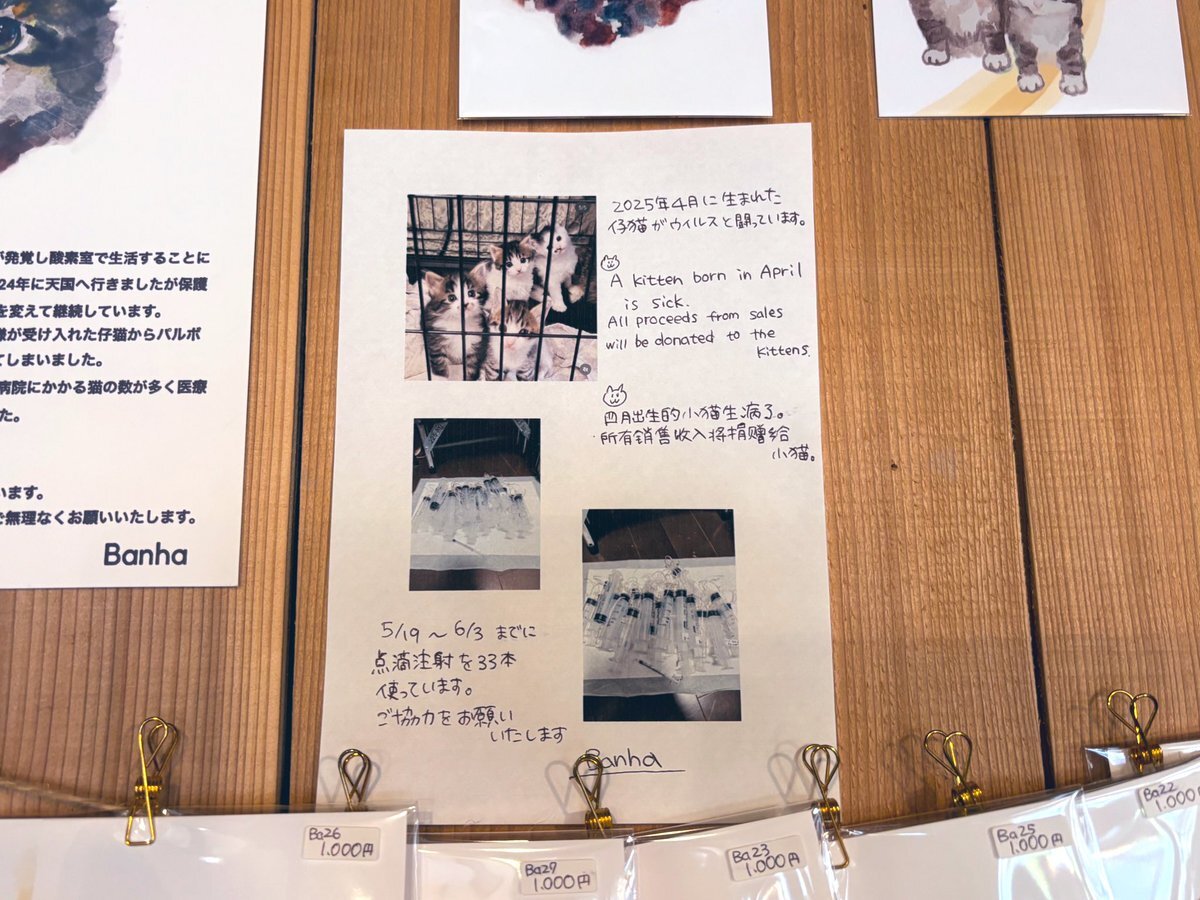 が発覚し酸素室で生活することに
24年に天国へ行きましたが保護
を変えて継続しています。
様が受け入れた仔猫からパルボ
てしまいました。
病院にかかる猫の数が多く医療
た。
います。
で無理なくお願いいたします。
Banha
2025年4月に生まれた
仔猫がウイルスと闘っています。
A kitten born in April
is sick.
All proceeds from sales
will be donated to the
kittens.
四月出生的小猫生病了。
所有销售收入将捐赠给
小猫。
5/19～6/3 までに
点滴注射を33本
使っています。
ご協力をお願い
いたします
Banha
Ba26
1.000円
Ba29
1.000円
Ba23
1.000円
Ba25
1.000円
Ba22
1.000円